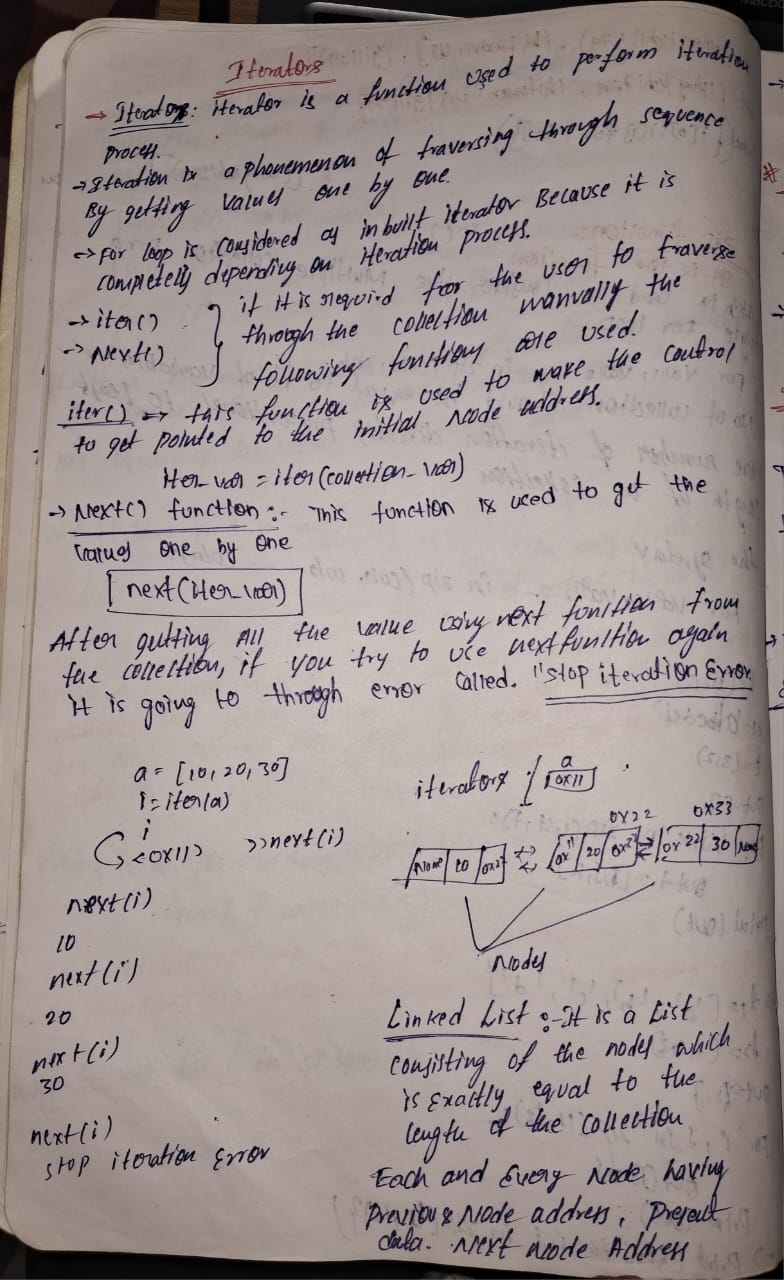 Iterators
→ Iterators: iterator is a function used to perform iteration
process.
→ Iteration is a phonemenon of traversing through sequence
By getting values one by one.
→ For loop is considered as inbuilt iterator Because it is
completely depending on iteration process.
→ iter()
→ Next()
if it is requird for the user to traverse
through the collection manually the
following functions are used.
iter() → this function is used to make the control
to get pointed to the initial node address.
iter_var = iter(collection_var)
→ Next() function :- This function is used to get the
values one by one
next(iter_var)
After gutting All the value using next funition from
the collection, if you try to use next funition again
it is going to through error called. "stop iteration Error
a = [10, 20, 30]
i = iter(a)
i
<0x11> >>next(i)
next(i)
10
next(i)
20
next(i)
30
next(i)
stop iteration Error
iterators
a
0x11
0x22 0x33
None 10 0x22 0x11 20 0x33 0x22 30 None
Nodes
Linked List :- It is a List
consisting of the nodes which
is Exactly equal to the
length of the collection
Each and Every Node having
previous Node address, present
data. Next node Address